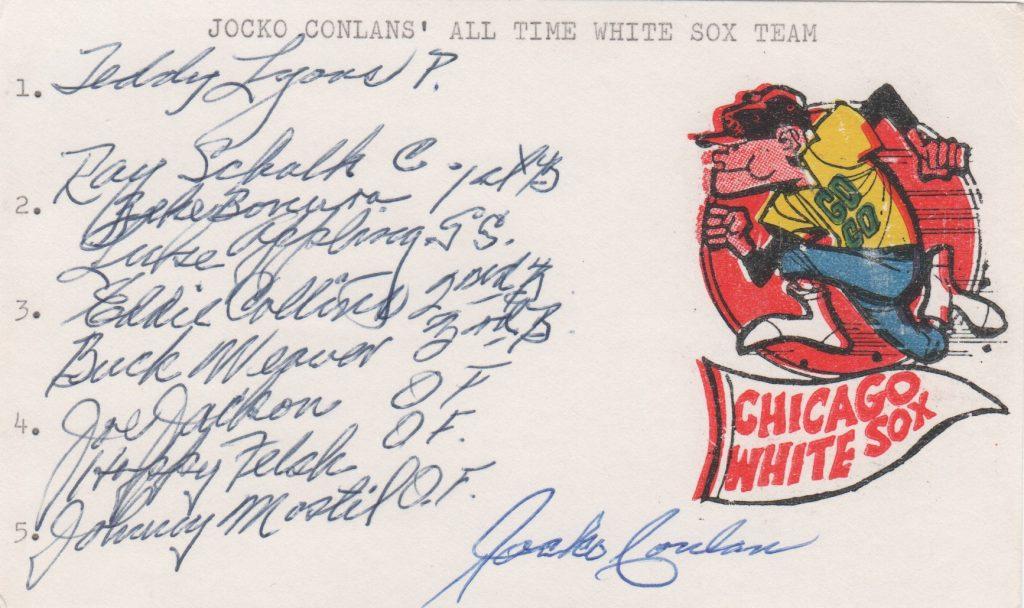 JOCKO CONLANS' ALL TIME WHITE SOX TEAM
1. Teddy Lyons P.
Ray Schalk C
2. Zeke Bonura 1st B
Luke Appling S S.
3. Eddie Collins 2nd B
Buck Weaver 3rd B
Joe Jackson O F
4. Happy Felsk O F.
5. Johnny Mostil O.F.
Jocko Conlan
GO
GO
CHICAGO
WHITE SOX